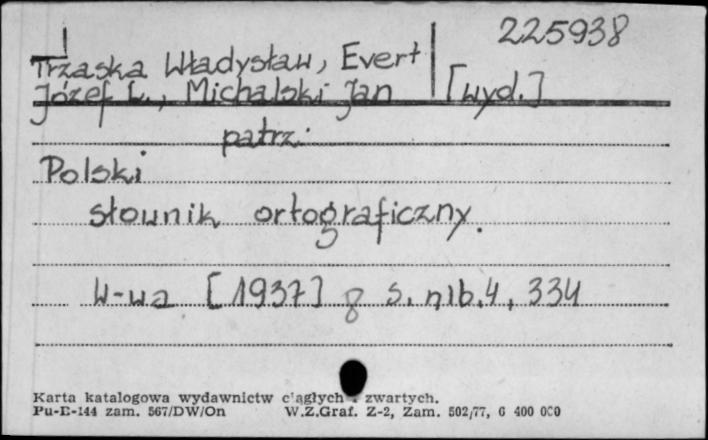 225938
Trzaska Władysław, Evert
Józef L., Michalski Jan [wyd.]
patrz:
Polski
słownik ortograficzny.
W-wa [1937] 8 s. nlb. 4, 334
Karta katalogowa wydawnictw ciągłych i zwartych.
Pu-E-144 zam. 567/DW/On W.Z.Graf. Z-2, Zam. 502/77, 6 400 000